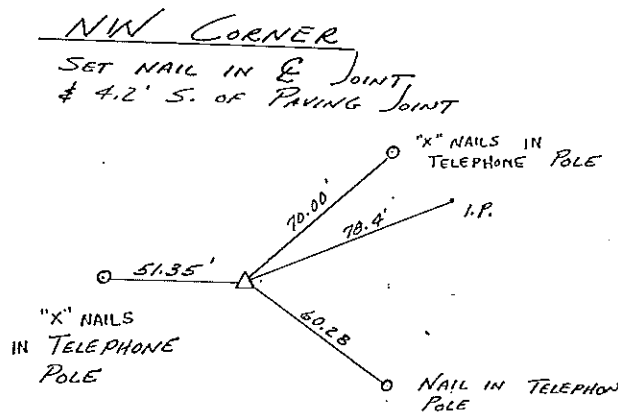 NW CORNER
SET NAIL IN ℄ JOINT
& 4.2' S. OF PAVING JOINT
"X" NAILS IN
TELEPHONE POLE
70.00'
78.4'
I.P.
51.35'
"X" NAILS
IN TELEPHONE
POLE
60.28
NAIL IN TELEPHON
POLE